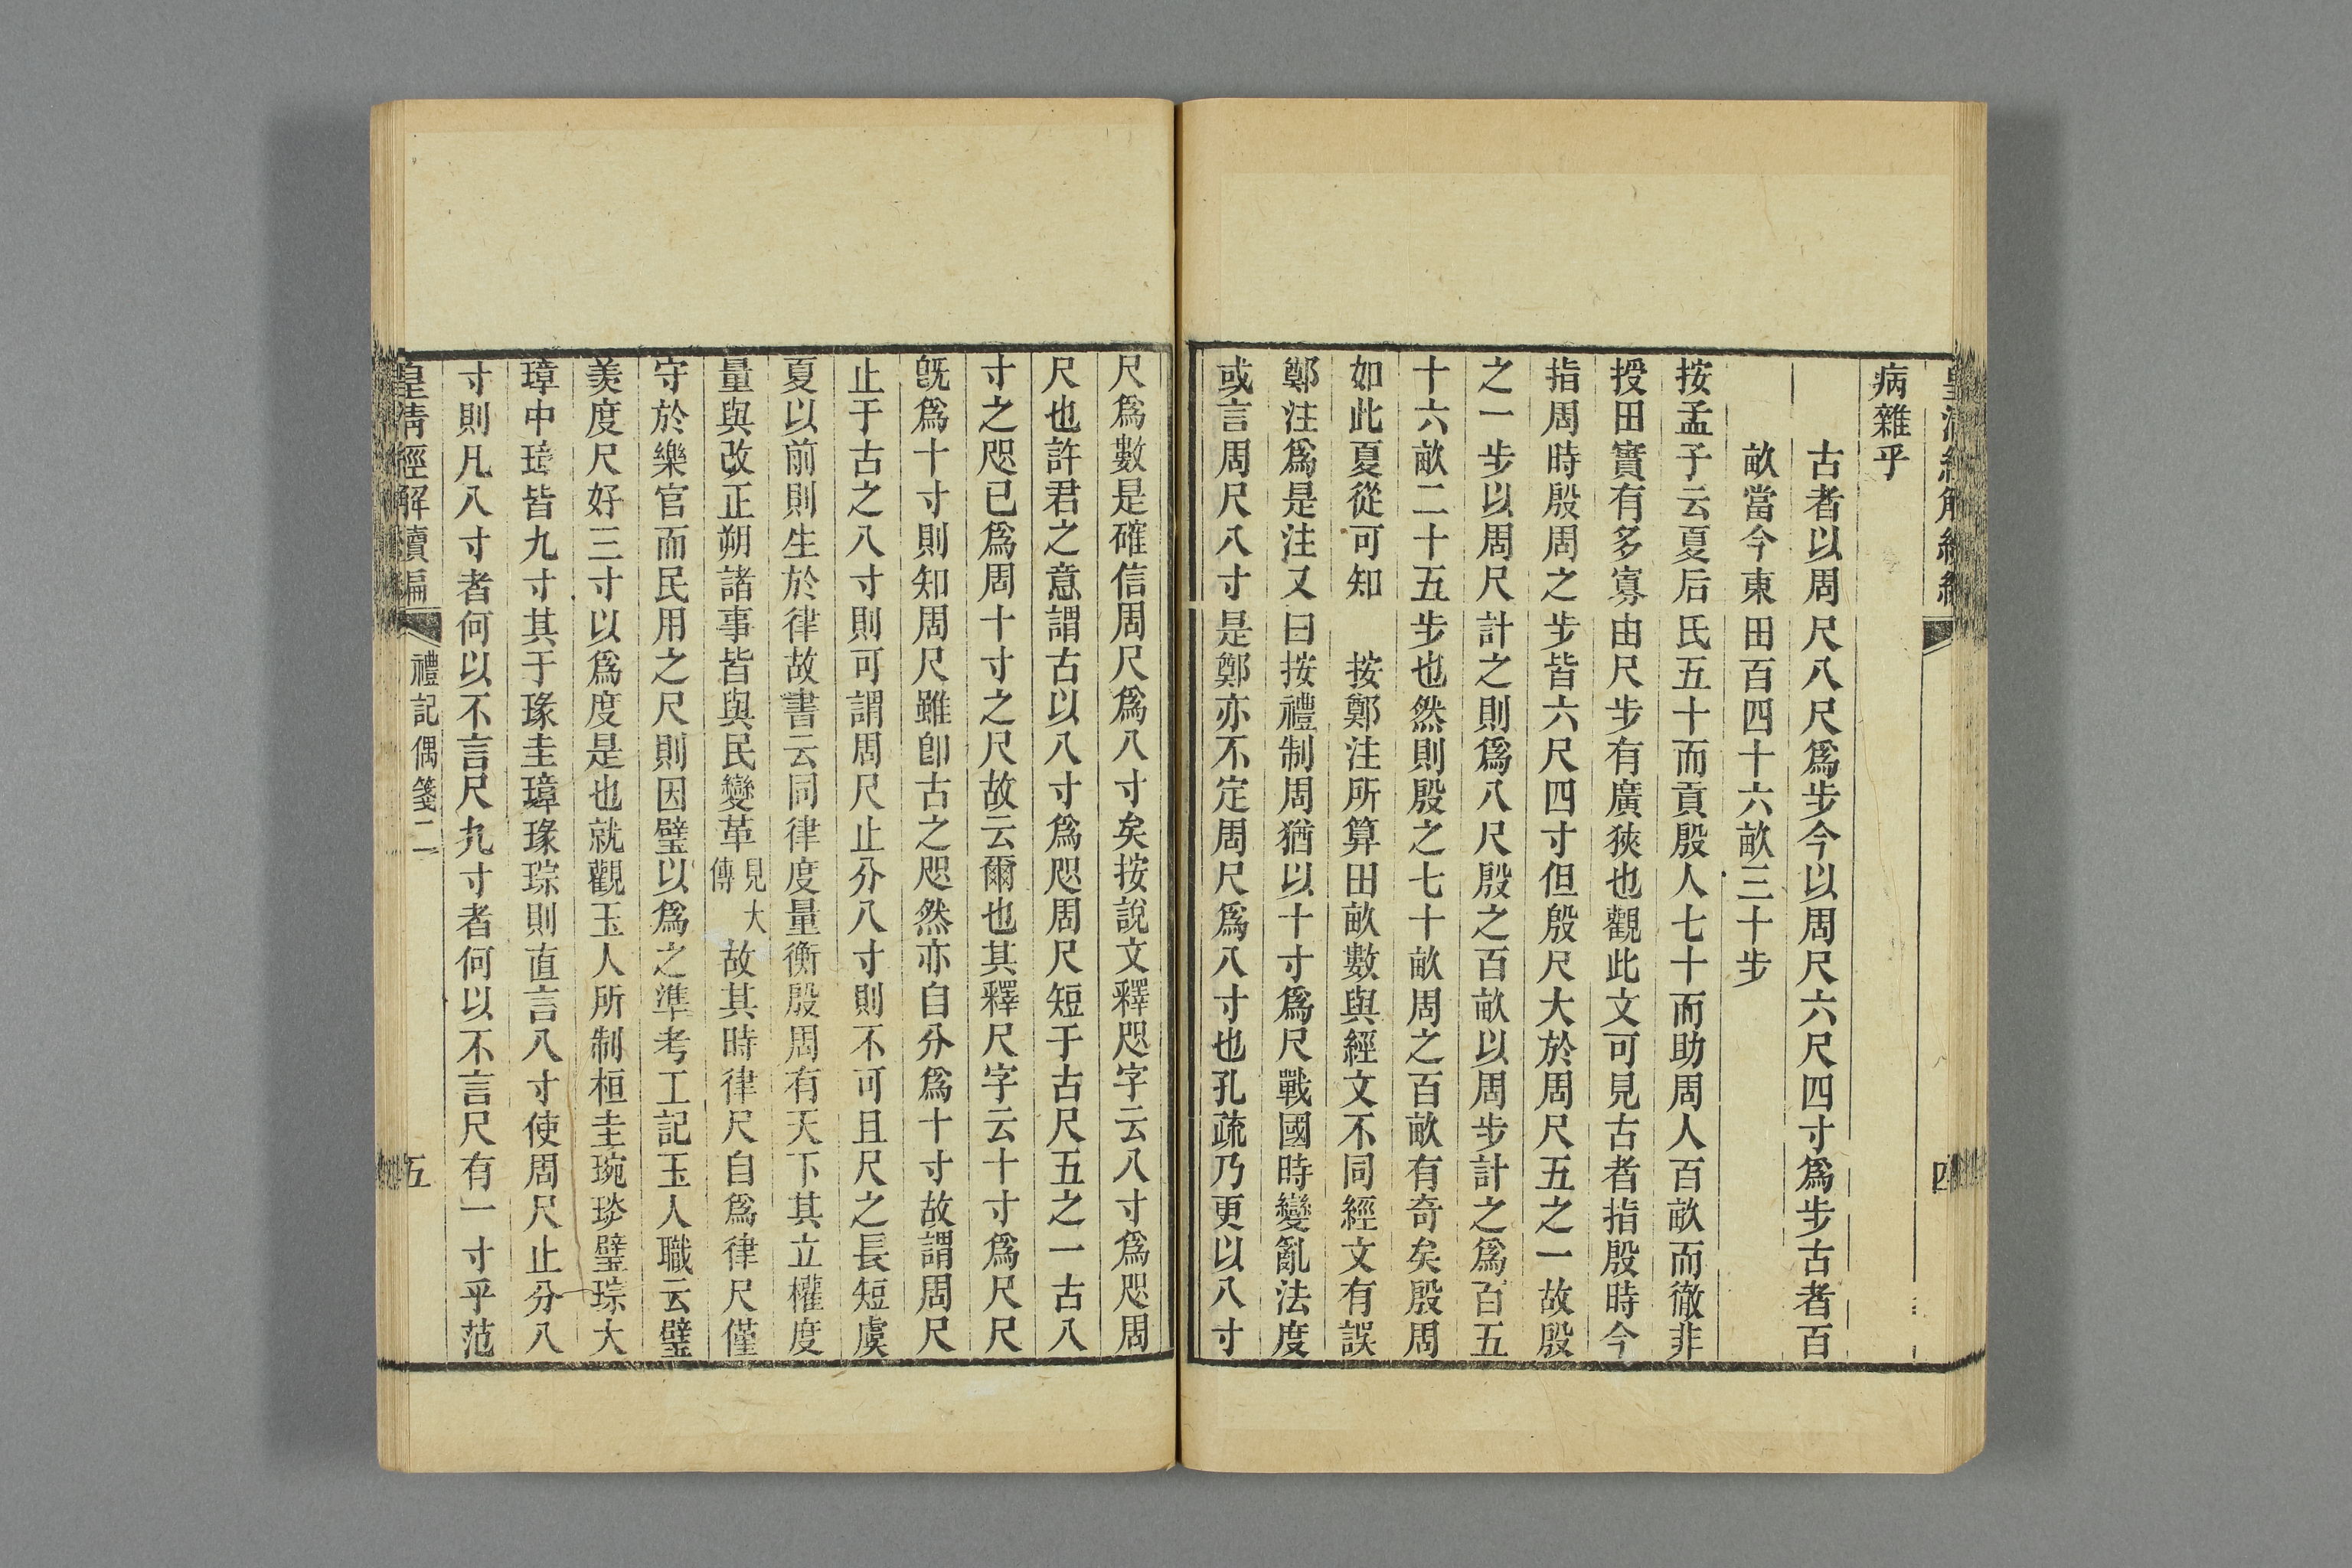 病雜乎
古者以周尺八尺爲步今以周尺六尺四寸爲步古者百
畝當今東田百四十六畝三十步
按孟子云夏后氏五十而貢殷人七十而助周人百畝而徹非
授田實有多寡由尺步有廣狹也觀此文可見古者指殷時今
指周時殷周之步皆六尺四寸但殷尺大於周尺五之一故殷
之一步以周尺計之則爲八尺殷之百畝以周步計之爲百五
十六畝二十五步也然則殷之七十畝周之百畝有奇矣殷周
如此夏從可知 按鄭注所算田畝數與經文不同經文有誤
鄭注爲是注又曰按禮制周猶以十寸爲尺戰國時變亂法度
或言周尺八寸是鄭亦不定周尺爲八寸也孔疏乃更以八寸
四
尺爲數是確信周尺爲八寸矣按說文釋咫字云八寸爲咫周
尺也許君之意謂古以八寸爲咫周尺短于古尺五之一古八
寸之咫已爲周十寸之尺故云爾也其釋尺字云十寸爲尺尺
旣爲十寸則知周尺雖卽古之咫然亦自分爲十寸故謂周尺
止于古之八寸則可謂周尺止分八寸則不可且尺之長短虞
夏以前則生於律故書云同律度量衡殷周有天下其立權度
量與改正朔諸事皆與民變革見大傳故其時律尺自爲律尺僅
守於樂官而民用之尺則因璧以爲之準考工記玉人職云璧
羨度尺好三寸以爲度是也就觀玉人所制桓圭琬琰璧琮大
璋中璋皆九寸其于瑑圭璋瑑琮則直言八寸使周尺止分八
寸則凡八寸者何以不言尺九寸者何以不言尺有一寸乎范
皇清經解續編
禮記偶箋二
五